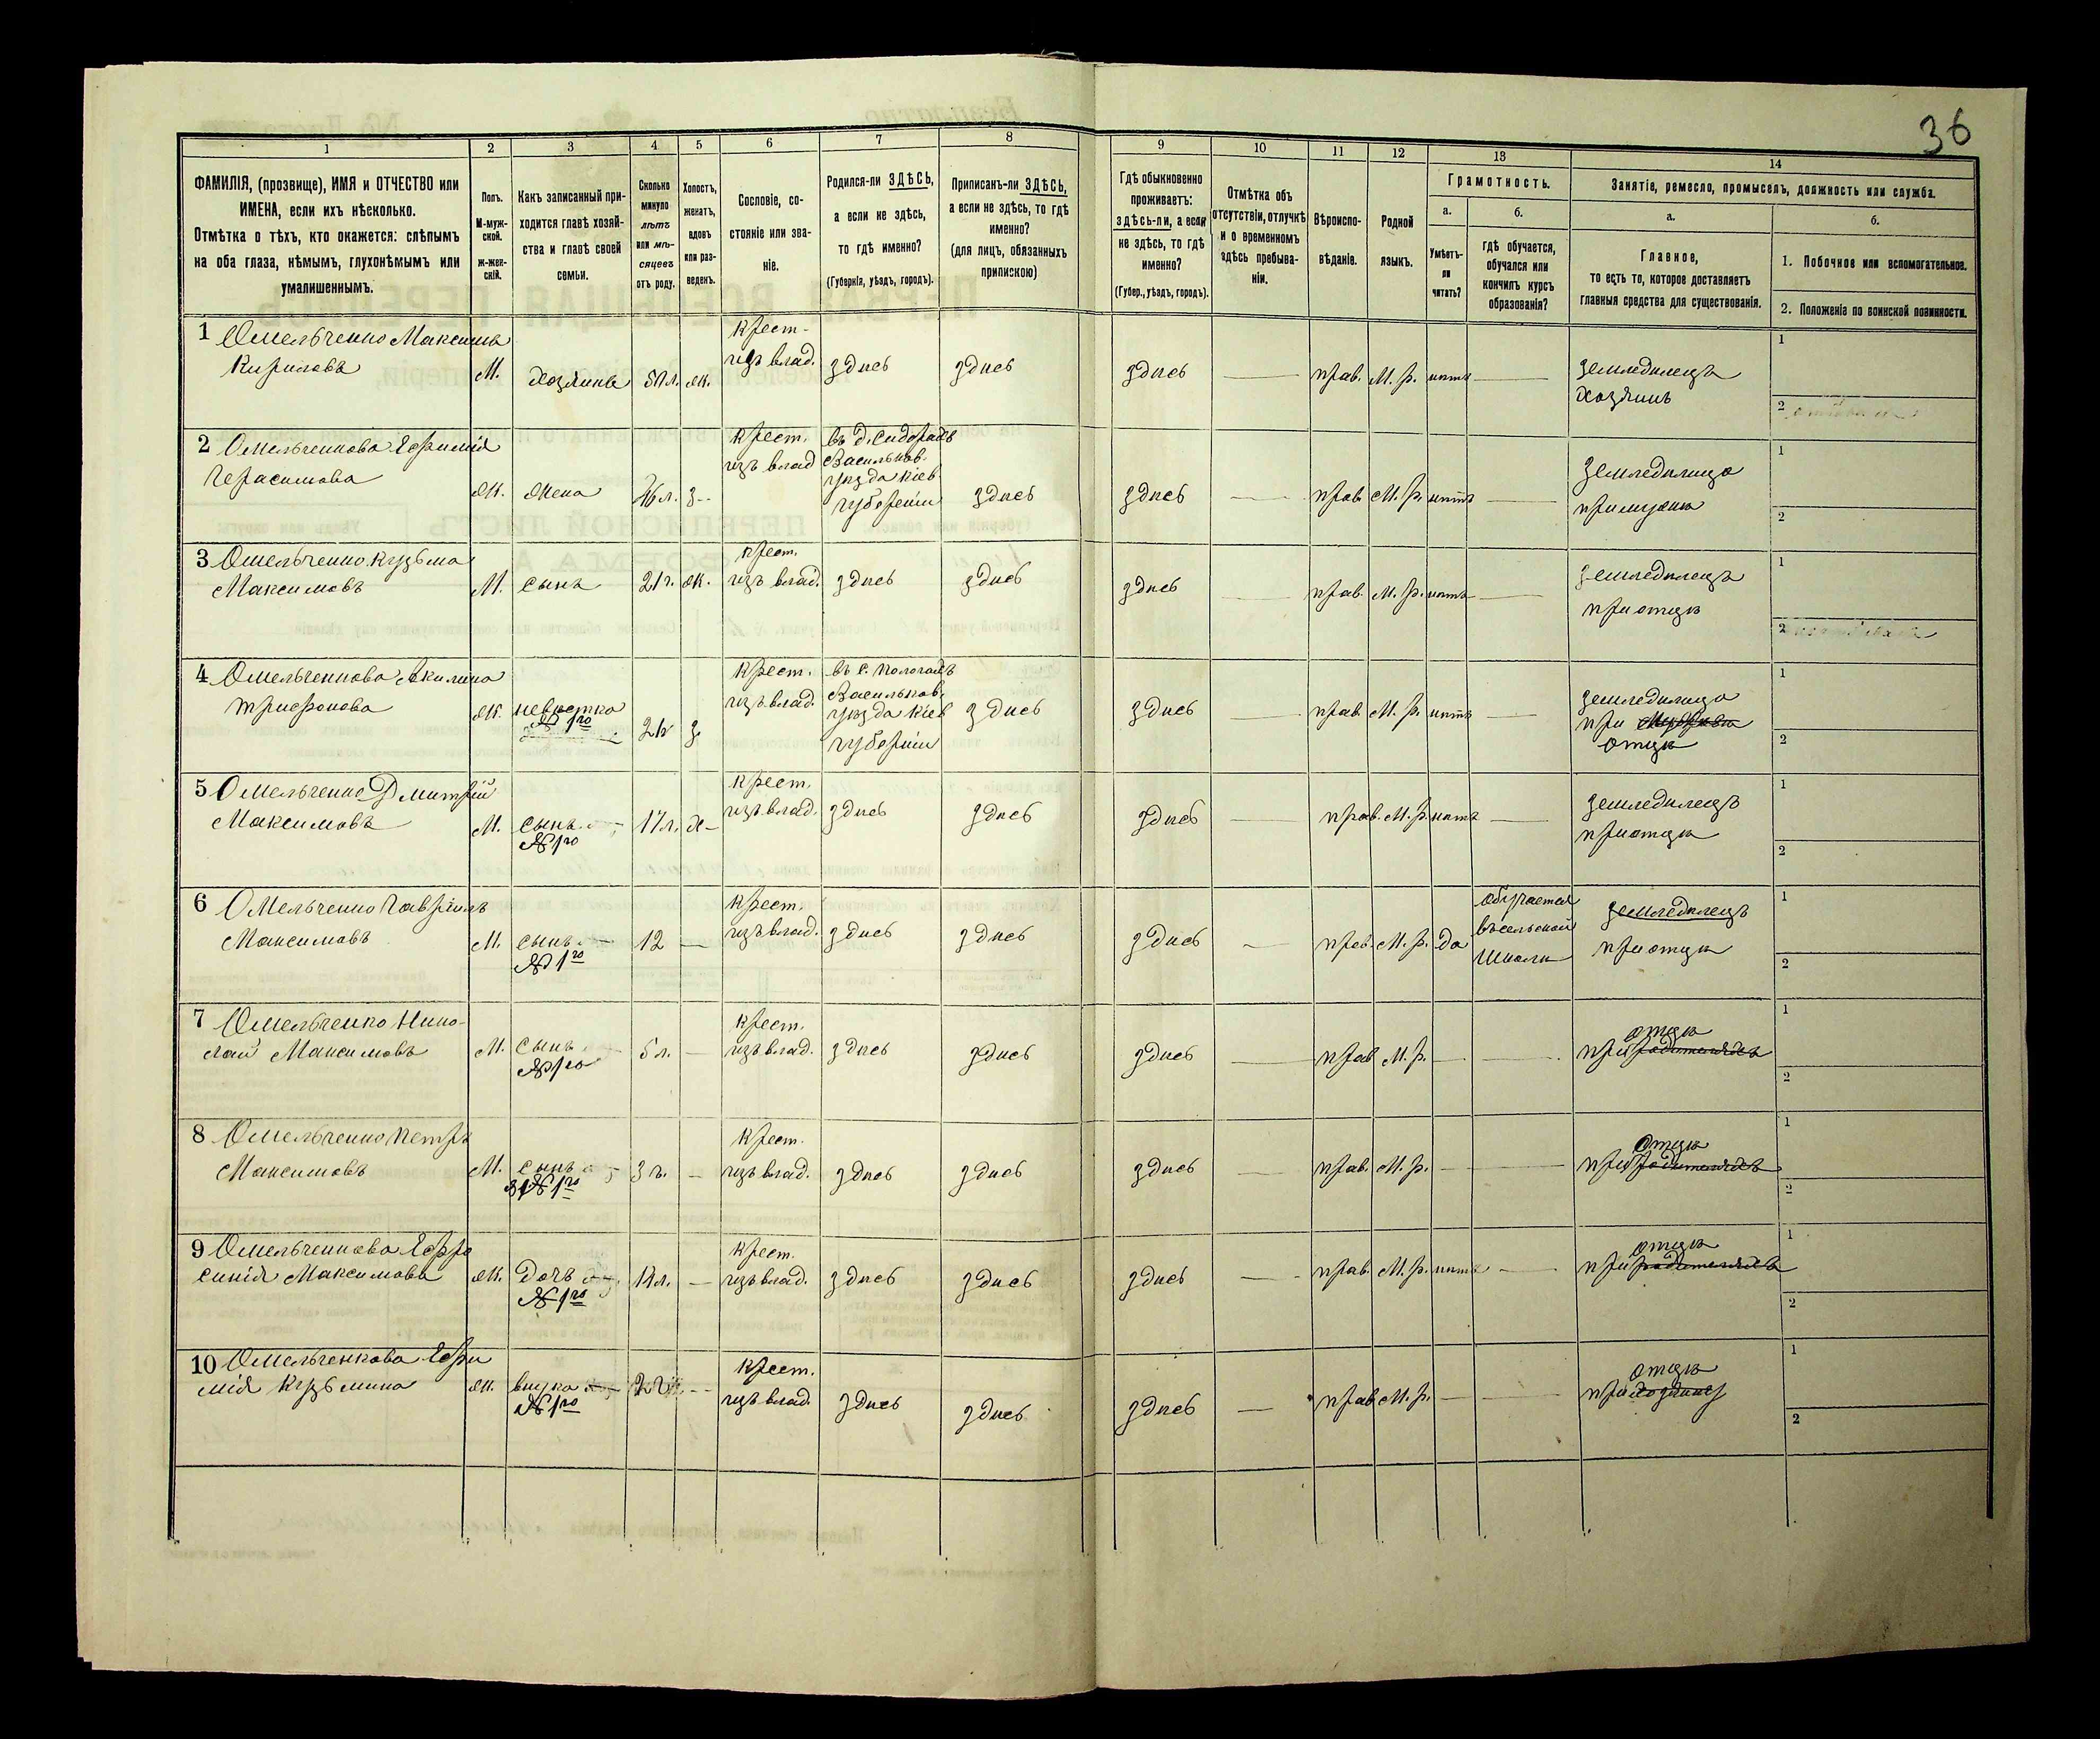 36
1
2
3
4
5
6
7
8
9
10
11
12
13
14
ФАМИЛІЯ, (прозвище), ИМЯ и ОТЧЕСТВО или
ИМЕНА, если ихъ нѣсколько.
Отмѣтка о тѣхъ, кто окажется: слѣпымъ
на оба глаза, нѣмымъ, глухонѣмымъ или
умалишеннымъ.
Полъ.
М-муж-
ской.
ж-жен-
скій.
Какъ записанный при-
ходится главѣ хозяй-
ства и главѣ своей
семьи.
Сколько
минуло
лѣтъ
или мѣ-
сяцевъ
отъ роду.
Холостъ,
женатъ,
вдовъ
или раз-
веденъ.
Сословіе, со-
стояніе или зва-
ніе.
Родился-ли ЗДѢСЬ,
а если не здѣсь,
то гдѣ именно?
(Губернія, уѣздъ, городъ).
Приписанъ-ли ЗДѢСЬ,
а если не здѣсь, то гдѣ
именно?
(для лицъ, обязанныхъ
припискою)
Гдѣ обыкновенно
проживаетъ:
здѣсь-ли, а если
не здѣсь, то гдѣ
именно?
(Губер., уѣздъ, городъ).
Отмѣтка объ
отсутствіи, отлучкѣ
и о временномъ
здѣсь пребыва-
ніи.
Вѣроиспо-
вѣданіе.
Родной
языкъ.
Грамотность.
а.
Умѣетъ-
ли
читать?
б.
гдѣ обучается,
обучался или
кончилъ курсъ
образованія?
Занятіе, ремесло, промыселъ, должность или служба.
а.
Главное,
то есть то, которое доставляетъ
главныя средства для существованія.
б.
1. Побочное или вспомогательное.
2. Положеніе по воинской повинности.
1 Омельченко Максимъ
Кириловъ
М.
Хозяинъ
50 л.
ж.
Крест.
изъ влад.
здѣсь
здѣсь
здѣсь
прав.
М. р.
нѣтъ
земледѣлецъ
хозяинъ
1
2
2 Омельченкова Ефимія
Герасимова
ж.
жена
46 л.
з-
Крест.
изъ влад
въ д. Сидорахъ
Васильков.
уѣзда Кіев.
губерніи
здѣсь
здѣсь
прав.
М. р.
нѣтъ
земледѣлица
при мужѣ
1
2
3 Омельченко Кузьма
Максимовъ
М.
сынъ
21 г.
ж.
Крест.
изъ влад.
здѣсь
здѣсь
здѣсь
прав.
М. р.
нѣтъ
земледѣлецъ
при отцѣ
1
2
4 Омельченкова Акилина
Трифонова
ж.
невѣстка
№ 1го
з
Крест.
изъ влад.
въ с. Пологахъ
Васильков.
уѣзда Кіев
губерніи
здѣсь
здѣсь
прав.
М. р.
нѣтъ
земледѣлица
при
отцѣ
1
2
5 Омельченко Дмитрій
Максимовъ
М.
сынъ
№ 1го
17 л.
х-
Крест.
изъ влад.
здѣсь
здѣсь
здѣсь
прав.
М. р.
нѣтъ
земледѣлецъ
при отцѣ
1
2
6 Омельченко Гавріилъ
Максимовъ
М.
сынъ
№ 1го
12
Крест.
изъ влад.
здѣсь
здѣсь
здѣсь
прав.
М. р.
да
обучается
въ сельской
школѣ
земледѣлецъ
при отцѣ
1
2
7 Омельченко Нико-
лай Максимовъ
М.
сынъ
№ 1го
5 л.
Крест.
изъ влад.
здѣсь
здѣсь
здѣсь
прав
М. р.
отцѣ
при родителяхъ
1
2
8 Омельченко Петръ
Максимовъ
М.
сынъ
№ 1го
3 г.
Крест.
изъ влад.
здѣсь
здѣсь
здѣсь
прав.
М. р.
отцѣ
при родителяхъ
1
2
9 Омельченкова Ефро
синія Максимова
ж.
дочь
№ 1го
Крест.
изъ влад.
здѣсь
здѣсь
здѣсь
прав.
М. р.
нѣтъ
отцѣ
при родителяхъ
1
2
10 Омельченкова Ефи
мія Кузьмина
ж.
внука
№ 1го
2 г
Крест.
изъ влад.
здѣсь
здѣсь
здѣсь
прав
М. р.
отцѣ
при
1
2